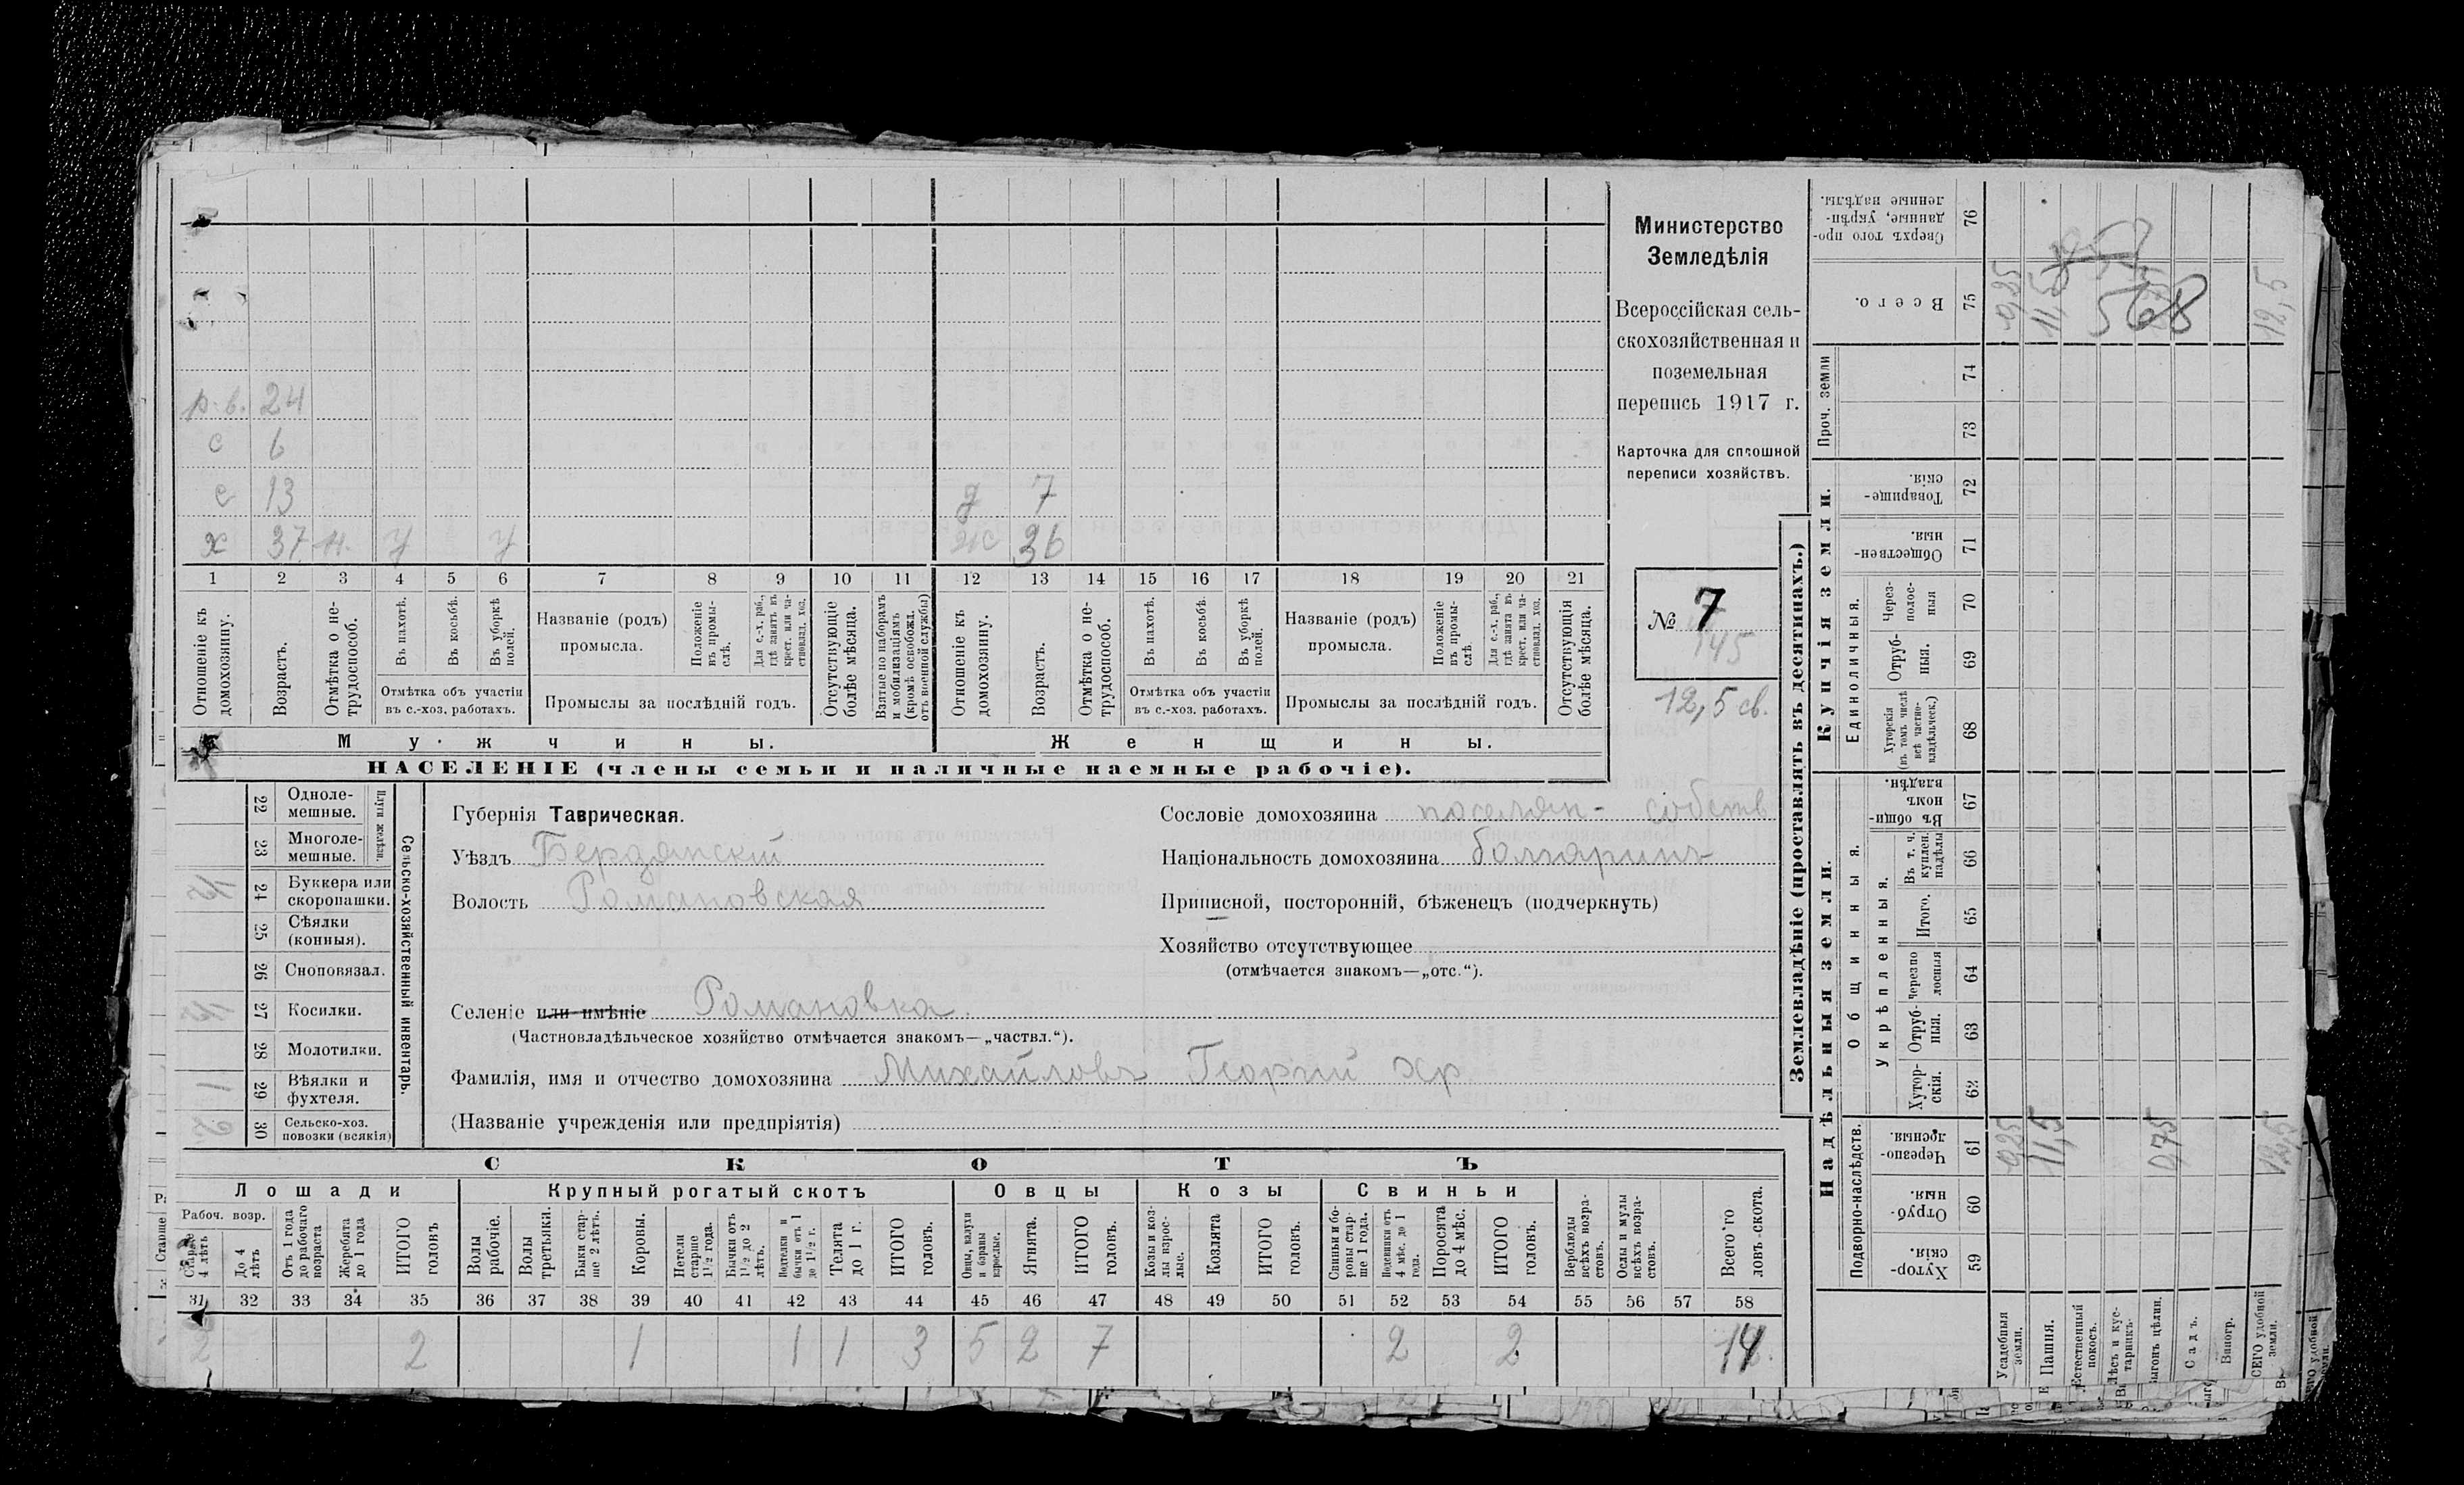 р. в. 24
с 6
с 13 д 7
х 37 н. у у ж 36
1 2 3 4 5 6 7 8 9 10 11 12 13 14 15 16 17 18 19 20 21
Отношеніе къ домохозяину.
Возрастъ.
Отмѣтка о нетрудоспособ.
Въ пахотѣ.
Въ косьбѣ.
Въ уборкѣ полей.
Отмѣтка объ участіи
въ с.-хоз. работахъ.
Названіе (родъ)
промысла.
Положеніе въ промыслѣ.
Для с.-х. раб., гдѣ занятъ въ крест. или частновлад. хоз.
Промыслы за послѣдній годъ.
Отсутствующіе болѣе мѣсяца.
Взятые по наборамъ и мобилизаціямъ (кромѣ освобожд. отъ военной службы)
Отношеніе къ домохозяину.
Возрастъ.
Отмѣтка о нетрудоспособ.
Въ пахотѣ.
Въ косьбѣ.
Въ уборкѣ полей.
Отмѣтка объ участіи
въ с.-хоз. работахъ.
Названіе (родъ)
промысла.
Положеніе въ промыслѣ.
Для с.-х. раб., гдѣ занята въ крест. или частновлад. хоз.
Промыслы за послѣдній годъ.
Отсутствующія болѣе мѣсяца.
Мужчины. Женщины.
НАСЕЛЕНІЕ (члены семьи и наличные наемные рабочіе).
Министерство
Земледѣлія
Всероссійская сель-
скохозяйственная и
поземельная
перепись 1917 г.
Карточка для сплошной
переписи хозяйствъ.
№ 7
145
12,5 св.
22 Одноле-
мешные.
23 Многоле-
мешные.
Плуги желѣзн.
24 Буккера или
скоропашки.
25 Сѣялки
(конныя).
26 Сноповязал.
27 Косилки.
28 Молотилки.
1 29 Вѣялки и
фухтеля.
2 30 Сельско-хоз.
повозки (всякія)
Сельско-хозяйственный инвентарь.
Губернія Таврическая.
Уѣздъ Бердянскій
Волость Романовская
Сословіе домохозяина поселян- собств
Національность домохозяина болгаринъ
Приписной, посторонній, бѣженецъ (подчеркнуть)
Хозяйство отсутствующее
(отмѣчается знакомъ—„отс.“).
Селеніе или имѣніе Романовка.
(Частновладѣльческое хозяйство отмѣчается знакомъ—„частвл.“).
Фамилія, имя и отчество домохозяина Михайловъ Георгий Хр
(Названіе учрежденія или предпріятія)
СКОТЪ
Лошади Крупный рогатый скотъ Овцы Козы Свиньи
Рабоч. возр.
Старше 4 лѣтъ
До 4 лѣтъ
Отъ 1 года до рабочаго возраста
Жеребята до 1 года
ИТОГО головъ
Волы рабочіе.
Волы третьяки.
Быки старше 2 лѣтъ.
Коровы.
Нетели старше 1½ года.
Бычки отъ 1½ до 2 лѣтъ.
бычки отъ 1 до 1½ г.
Телята до 1 г.
ИТОГО головъ.
Овцы, валухи и бараны взрослые.
Ягнята.
ИТОГО головъ.
Козы и козлы взрослые.
Козлята
ИТОГО головъ.
Свиньи и боровы старше 1 года.
Подсвинки отъ 4 мѣс. до 1 года.
Поросята до 4 мѣс.
ИТОГО головъ.
Верблюды всѣхъ возрастовъ.
Ослы и мулы всѣхъ возрастовъ.
Всего головъ скота.
31 32 33 34 35 36 37 38 39 40 41 42 43 44 45 46 47 48 49 50 51 52 53 54 55 56 57 58
2 2 1 1 1 3 5 2 7 2 2 14
Землевладѣніе (проставлять въ десятинахъ.)
Купчія земли.
Надѣльныя земли.
Сверхъ того проданные, укрѣпленные надѣлы. 76
Всего. 75
Проч. земли
74
73
Товарищескія. 72
Общественныя. 71
Единоличныя.
Черезполосныя 70
Отрубныя. 69
Хуторскія (въ томъ числѣ всѣ частновладѣльческ.) 68
Общинныя.
Въ общинномъ владѣн. 67
Укрѣпленныя.
Въ т. ч. куплен. надѣлы 66
Итого. 65
Черезполосныя 64
Отрубныя. 63
Хуторскія. 62
Подворно-наслѣдств.
Черезполосныя. 61
Отрубныя. 60
Хуторскія. 59
Усадебныя земли.
Пашня.
Естественный покосъ.
Лѣсъ и кустарникъ.
Выгонъ цѣлин.
Садъ.
Виногр.
ВСЕГО удобной земли.
0,25 11,5 568 12,5
0,25 11,5 0,75 12,5